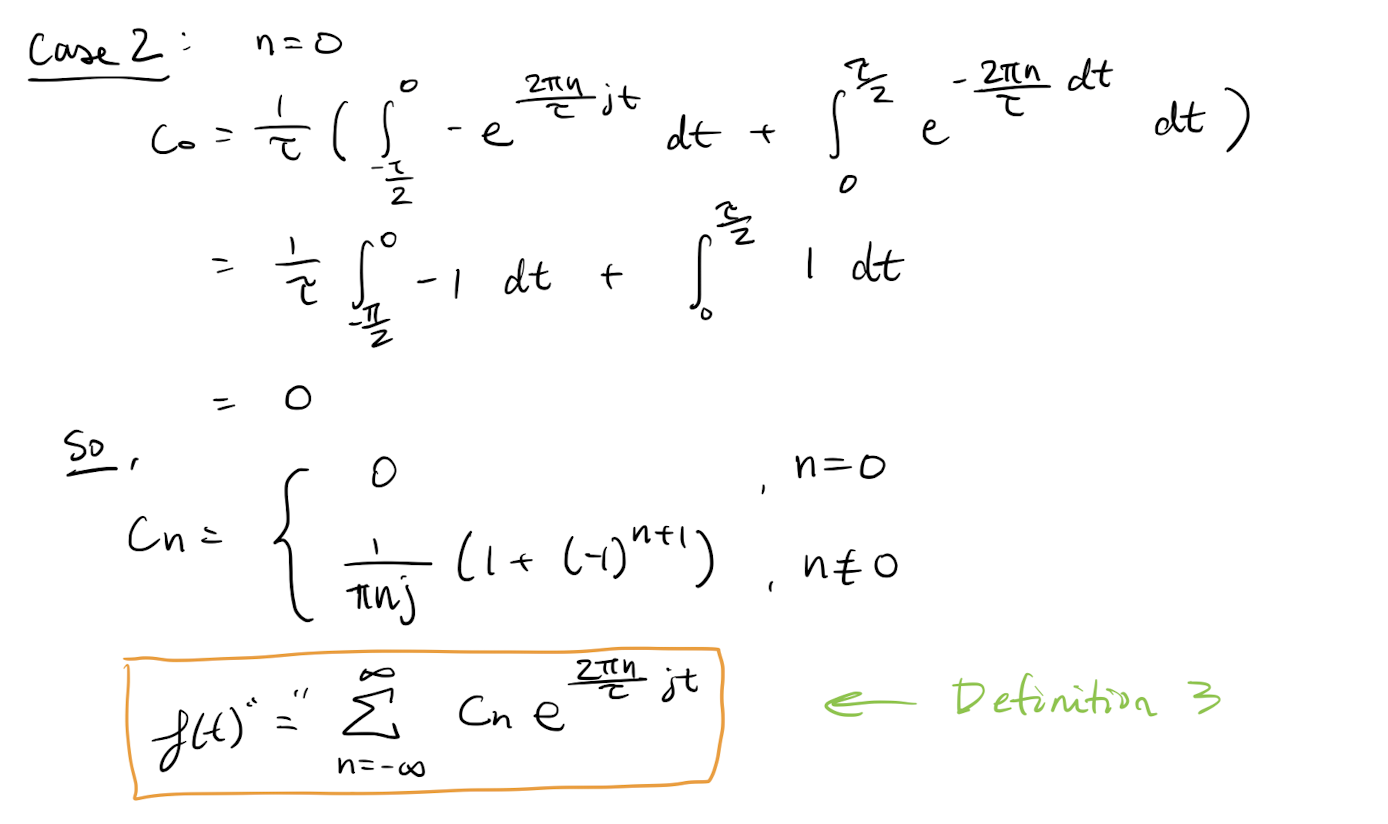 Case 2: n=0
C₀ = 1/τ ( ∫_{-τ/2}^{0} -e^{2πn/τ jt} dt + ∫_{0}^{τ/2} e^{-2πn/τ dt} dt )
= 1/τ ∫_{-π/2}^{0} -1 dt + ∫_{0}^{τ/2} 1 dt
= 0
So,
Cn = { 0 , n=0
1/(πnj) (1+(-1)^{n+1}) , n≠0
f(t) "=" ∑_{n=-∞}^{∞} Cn e^{2πn/τ jt} ← Definition 3